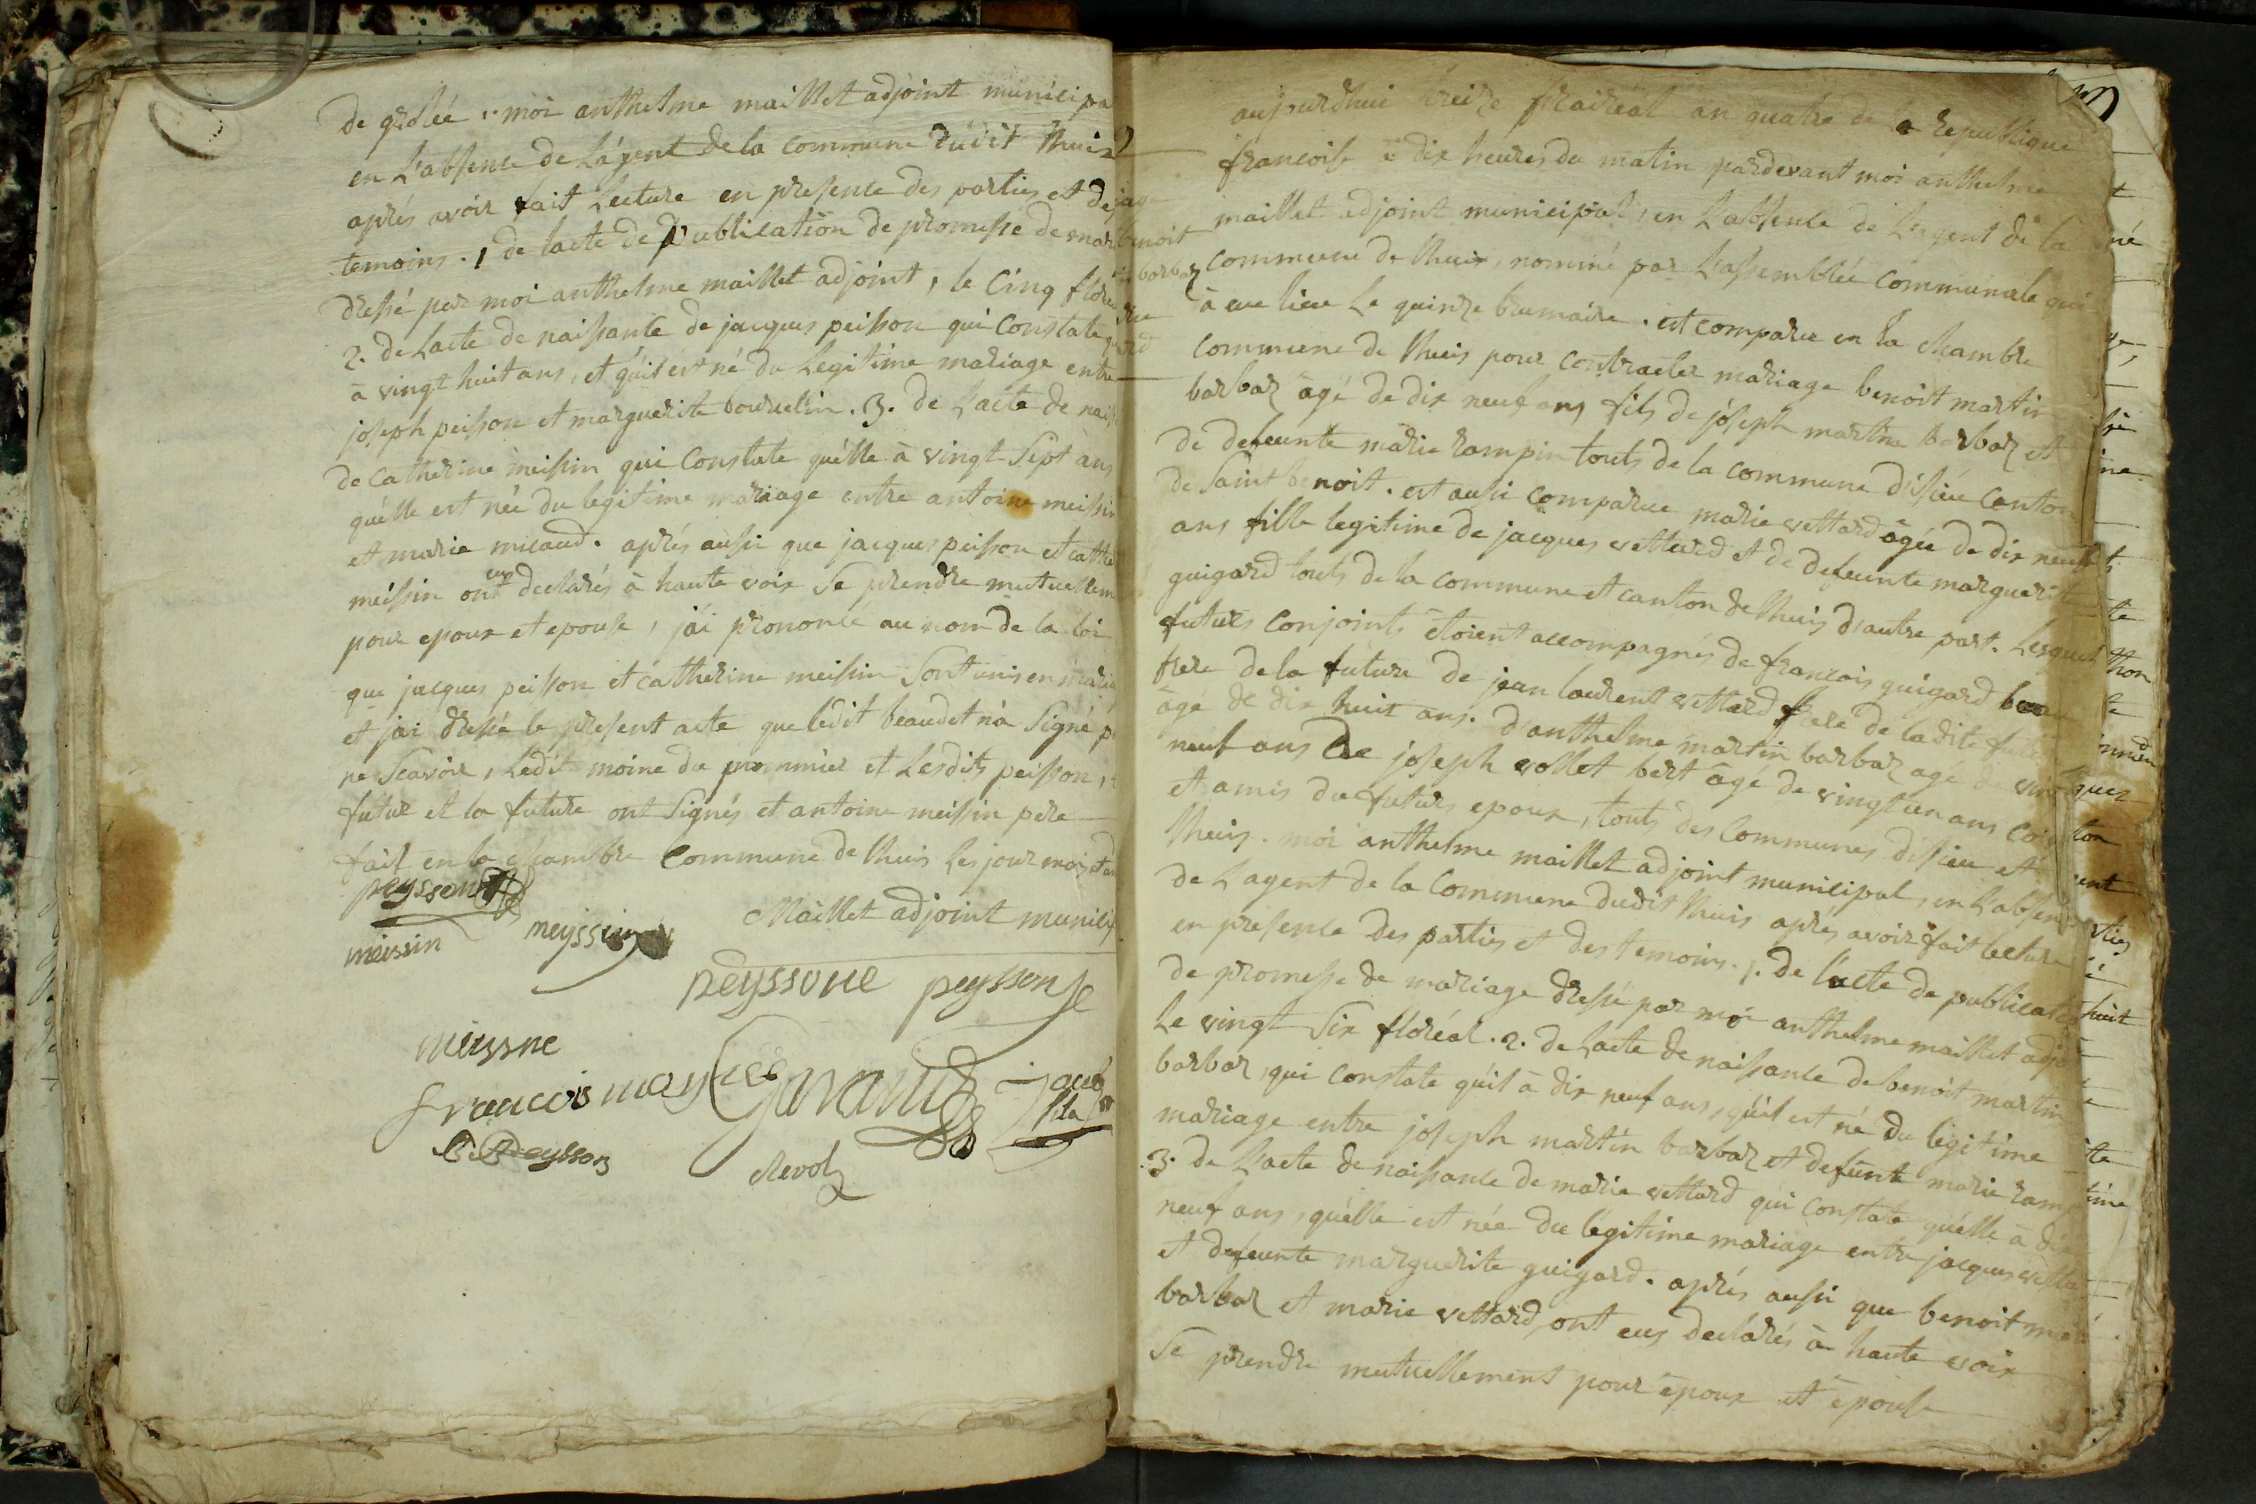 de grolée .. moi anthelme maillet adjoint municipa
en L'absence de L'ágent de la commune dudit Lhuis
aprés avoir fait Lecture en presence des parties et de
temoins . 1 de lacte de Publication de promesse de mar
dressé par moi anthelme maillet adjoint , le Cinq flore
2. de Lacte de naissance de jacques peisson qui Constate q
à vingt huit ans, et qúil est né du Legitime mariage entre
joseph peisson et marguerite bourselin . 3. de L'acte de nais
de Catherine meissin qui Constate qúélle à vingt Sept ans
qúélle est née du legitime mariage entre antoine meissin
et marie micaud . aprés aussi que jacques peisson et cathe
meissin ont eux declarés à haute voix Se prendre mutuellem
pour epoux et epouse , j'ai prononcé au nom de la loi
que jacques peisson et catherine meissin Sont unis en maria
et j'ai dressé le present acte que ledit beaudet n'a Signé p
ne Scavoir , Ledit moine du prommier et Lesdits peisson ,
futur et la future ont Signés et antoine meissin pere
fait en la chambre Commune de Lhuis les jour mois et an
peysson
Maillet adjoint municip
meissin meyssin
peyssone peysson
meyssne
francois
B. Peysson
Revol
aujourdhui treize prairéal an quatre de la Republique
francoise à dix heures du matin pardevant moi anthelme
maillet adjoint municipal , en L'absence de L'agent de la
commune de Lhuis , nominé par L'assemblée Communale qui
à eue lieue Le quinze brumaire . est comparu en la chambre
commune de Lhuis pour contracter mariage benoit martin
barbar âgé de dix neuf ans fils de joseph martin barbar et
de defeunte marie rampin touts de la commune d'issieu canton
de Saint benoit . est aussi comparue marie vettard âgée de dix neuf
ans fille legitime de jacques vettard et de defeunte marguerite
guigard touts de la commune et canton de Lhuis d'autre part . Lesquels
futurs Conjoints étoient accompagnés de francois guigard beau
frere de la future de jean laurent vettard frere de ladite future
âgé de dix huit ans . d'anthelme martin barbar age de vingt
neuf ans de joseph vollet bert âgé de vingt un ans
et amis du futurs epoux , touts des communes dissieu et
Lhuis . moi anthelme maillet adjoint municipal , en L'absence
de L'agent de la Commune dudit Lhuis aprés avoir fait lecture
en presence des parties et des temoins . 1. de l'acte de publicat
de promesse de mariage dressé par moi anthelme maillet adjo
Le vingt Six floréal . 2. de Lacte de naissance de benoit martin
barbar , qui constate qúil à dix neuf ans , qúil est né du légitime
mariage entre joseph martin barbar et defunte marie ramp
3. de L'acte de naissance de marie vettard qui constate qúélle a dix
neuf ans , qúélle est née du légitime mariage entre jacques vetta
et defeunte marguerite guigard . aprés aussi que benoit ma
barbar et marie vettard , ont eus declarés à haute voix
Se prendre mutuellement pour époux et épouse